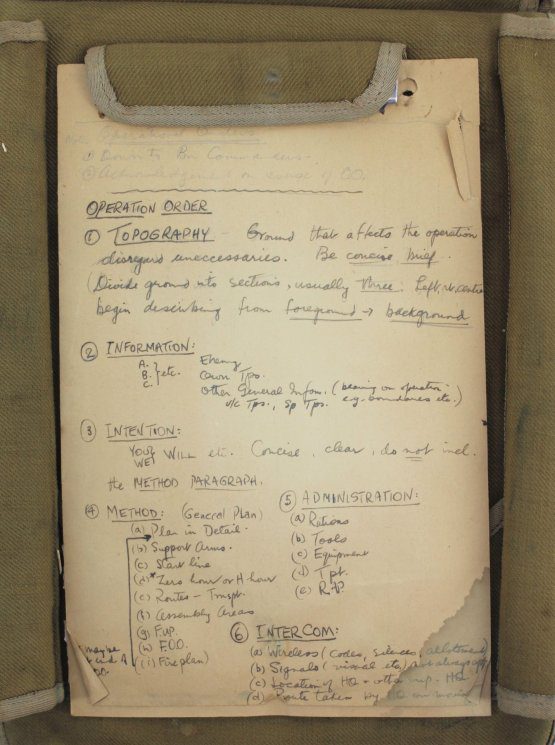 Operational
① Down to Bn Commanders.
② Acknowledgement on of CO.
OPERATION ORDER
① TOPOGRAPHY - Ground that affects the operation
disregard uneccessaries. Be concise, brief.
(Divide ground into sections, usually three. Left, rt, centre
begin describing from foreground → background
② INFORMATION:
A. Enemy
B. } etc. Own Tps.
C. Other General Inform. (bearing on operation
u/c Tps., Sp Tps. e.g. boundaries etc.)
③ INTENTION:
YOU?
WE? WILL etc. Concise, clear, do not incl.
the METHOD PARAGRAPH.
④ METHOD: (General Plan)
(a) Plan in Detail.
(b) Support Arms.
(c) Start line
(d) * Zero hour or H hour
(e) Routes - Transpt.
(f) Assembly Areas
(g) Fup.
(h)
(i) Fireplan)
maybe
A
⑤ ADMINISTRATION:
(a) Rations
(b) Tools
(c) Equipment
(d) Tpt.
(e) R.A.P.
⑥ INTERCOM:
(a) Wireless (codes, silences, allotment)
(b) Signals (visual etc)
(c) Location of HQ + other HQ
(d) Route taken by HQ on